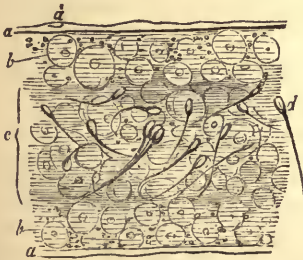 a
b
c
d
b
a